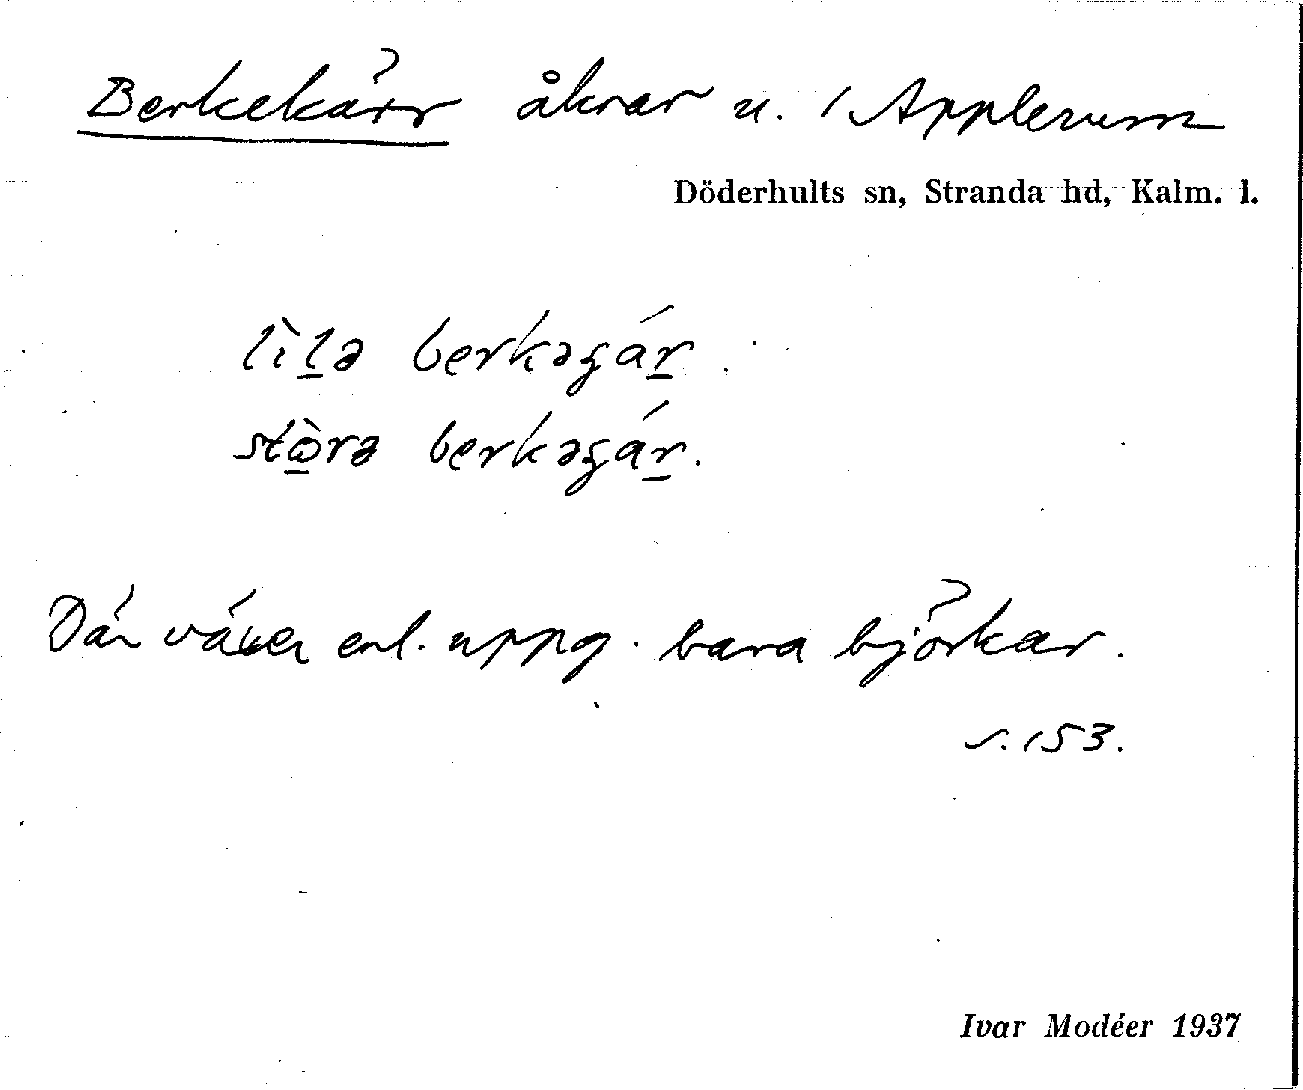 Berkekärr åkrar u. 1 Applerum
Döderhults sn, Stranda hd, Kalm. l.
lìl̠ə berkəgár̠.
stò̠rə berkəgár̠.
Där växer enl. uppg. bara björkar.
s. 153.
Ivar Modéer 1937